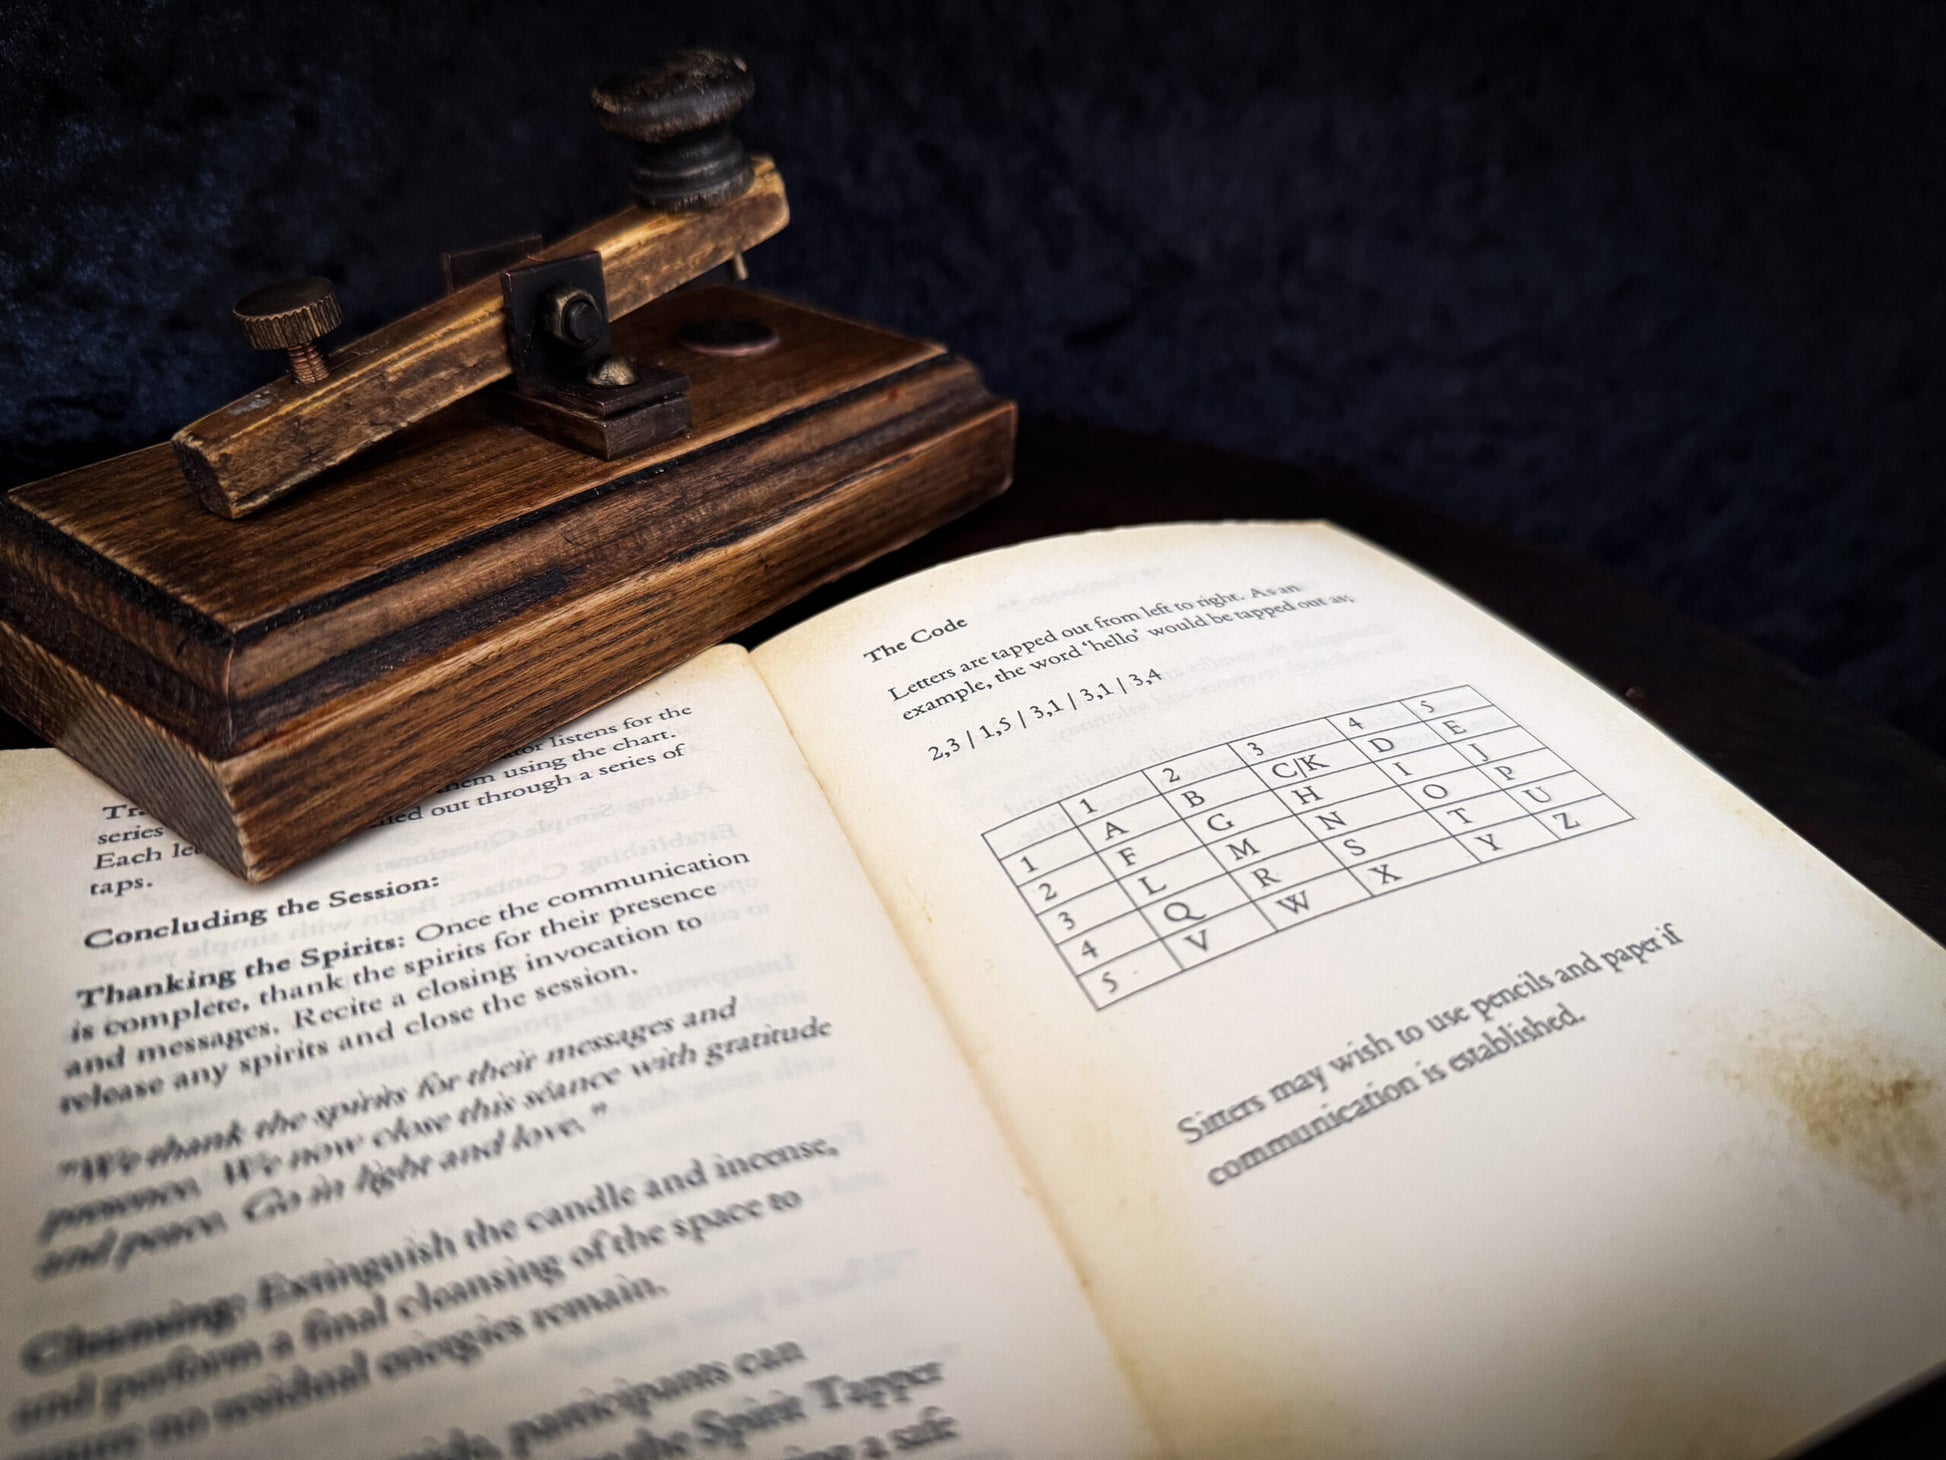 tor listens for the
series them using the chart.
Each led out through a series of
taps.
Concluding the Session:
Thanking the Spirits: Once the communication
is complete, thank the spirits for their presence
and messages. Recite a closing invocation to
release any spirits and close the session.
"We thank the spirits for their messages and
presence. We now close this séance with gratitude
and peace. Go in light and love."
Cleansing: Extinguish the candle and incense,
and perform a final cleansing of the space to
ensure no residual energies remain.
participants can
the Spirit Tapper
a safe
The Code
Letters are tapped out from left to right. As an
example, the word 'hello' would be tapped out as;
2,3 / 1,5 / 3,1 / 3,1 / 3,4
1 2 3 4 5
1 A B C/K D E
2 F G H I J
3 L M N O P
4 Q R S T U
5 V W X Y Z
Sitters may wish to use pencils and paper if
communication is established.